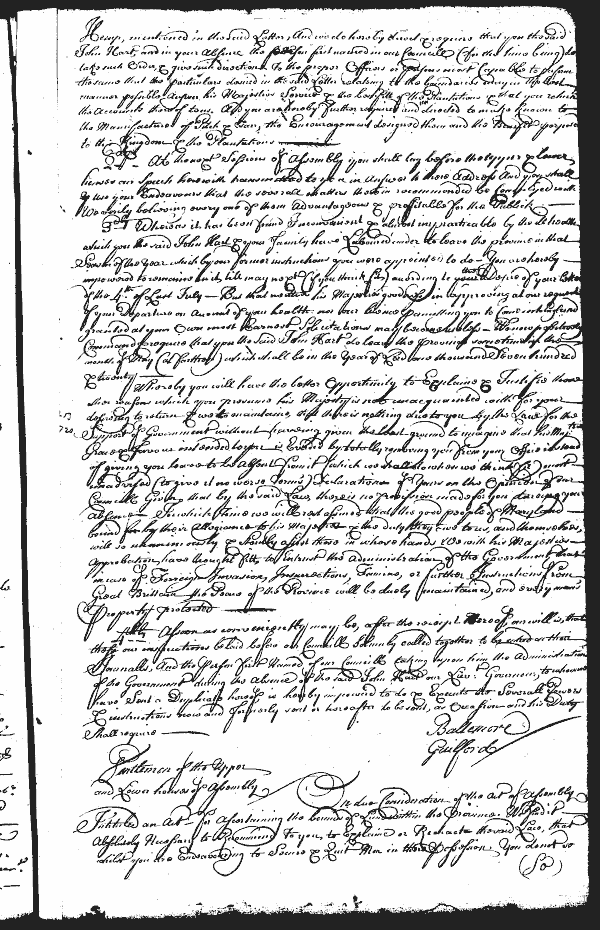 Hemp, mentioned in the said Letter, And we do hereby direct & require that you the said
John Hart, and in your Absence the person first named in our Councill (for the time being) do
take such Order, & give such directions To the proper Officers or persons most Capable to perform
the same that the particulars desired in the said Letter relating to the
manner possable Upon his Majesties Service & the benefitt of the Plantations
the Accounts thereof to us. And you are hereby further required and directed to make known to
the Manufacturers of Pitch & Tarr, the Encouragement designed them and the Benefit
to this Kingdom & the Plantations
At the next Session of Assembly you shall lay before the upper & lower
houses our Speech herewith transmitted to you in Answer to their Address And you shall
use your Endeavours that the severall matters therein recommended be Complyed with
We really believing every one of them Advantageous & profitable for the Publick
3dly Whereas it has been found Inconvenient & almost impracticable by the
which you the said John Hart & your family have Laboured under to leave the province in that
Season of the Year which by your former instructions you were appointed to do You are hereby
impowered to remaine untill May next (if you think fitt) according to your desire of your Letter
of the 4th of Last July But that neither his Majesties goodness in approving at our request
of your departure on Account of your health nor our
granted at your own most Earnest Solicitations may
Command & require that you the said John Hart do leave the province sometime in the
month of May (at furthest) which shall be in the Year of Lord one thousand Seven hundred
& twenty
Whereby you will have the better Opportunity to Explaine & Justifie those
other reasons which you presume his Majesty is not unacquainted with for your
desireing to return & not to maintaine, that there is nothing due to you by the Law for the
Support of Government without haveing given the least ground to imagine that his
Gracious favour intended to you is Evaded by totally removing you from your Office instead
of giving you leave to be Absent from it
unadvised (to give it no worse terms) Declaration of Yours on the Opinion of our
Councill Giving that by the said Law, there is no provision made for you dureing your
Absence In which time we will rest assured that the good people of Maryland
bound for by their Allegiance to his Majestie & the duty they owe to us, and themselves,
will so unanimously & Humbly assist those in whose hands We with his Majesties
Approbation, have thought fitt to Entrust the Administration of the Government that
in case of Foreign Invasion, Insurrections, Famine, or further Instructions from
Great Brittain the Peace of the Province will be duely maintained, and every man's
Property protected
4thly As soon as conveniently may be, after the receipt hereof our will is, that
these our instructions be laid before our Councill Solemnly called together to be entered in their
Journalls And the Person first Named of our Councill takeing upon him the Administration
of the Government dureing the Absence of the said John Hart our Lieut: Governour, to whom we
have Sent a Duplicate hereof is hereby impowered to do & Execute the Severall Powers
& instructions now and formerly sent or hereafter to be sent, as Occasion and his Duty
Shall require
Baltemore
Guilford
Gentlemen of the Upper
and Lower houses of Assembly
On due Consideration of the Act of Assembly
Intitled an Act for Ascertaining the bounds of Land within this Province. We find it
Absolutely Necessary to Recommend To you, to Explaine or Reenacte the said Law, that
whilst you are Endeavouring to Secure & Quiet Men in their Possession, You do not so
(So)